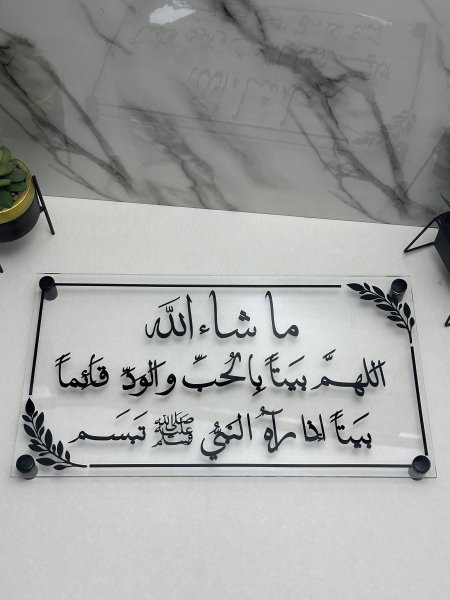 ما شاء الله
اللهمَّ بَيتاً بِالحُبِّ والودِّ قَائِماً
بَيتاً إذا رآهُ النبيُّ ﷺ تَبسَم